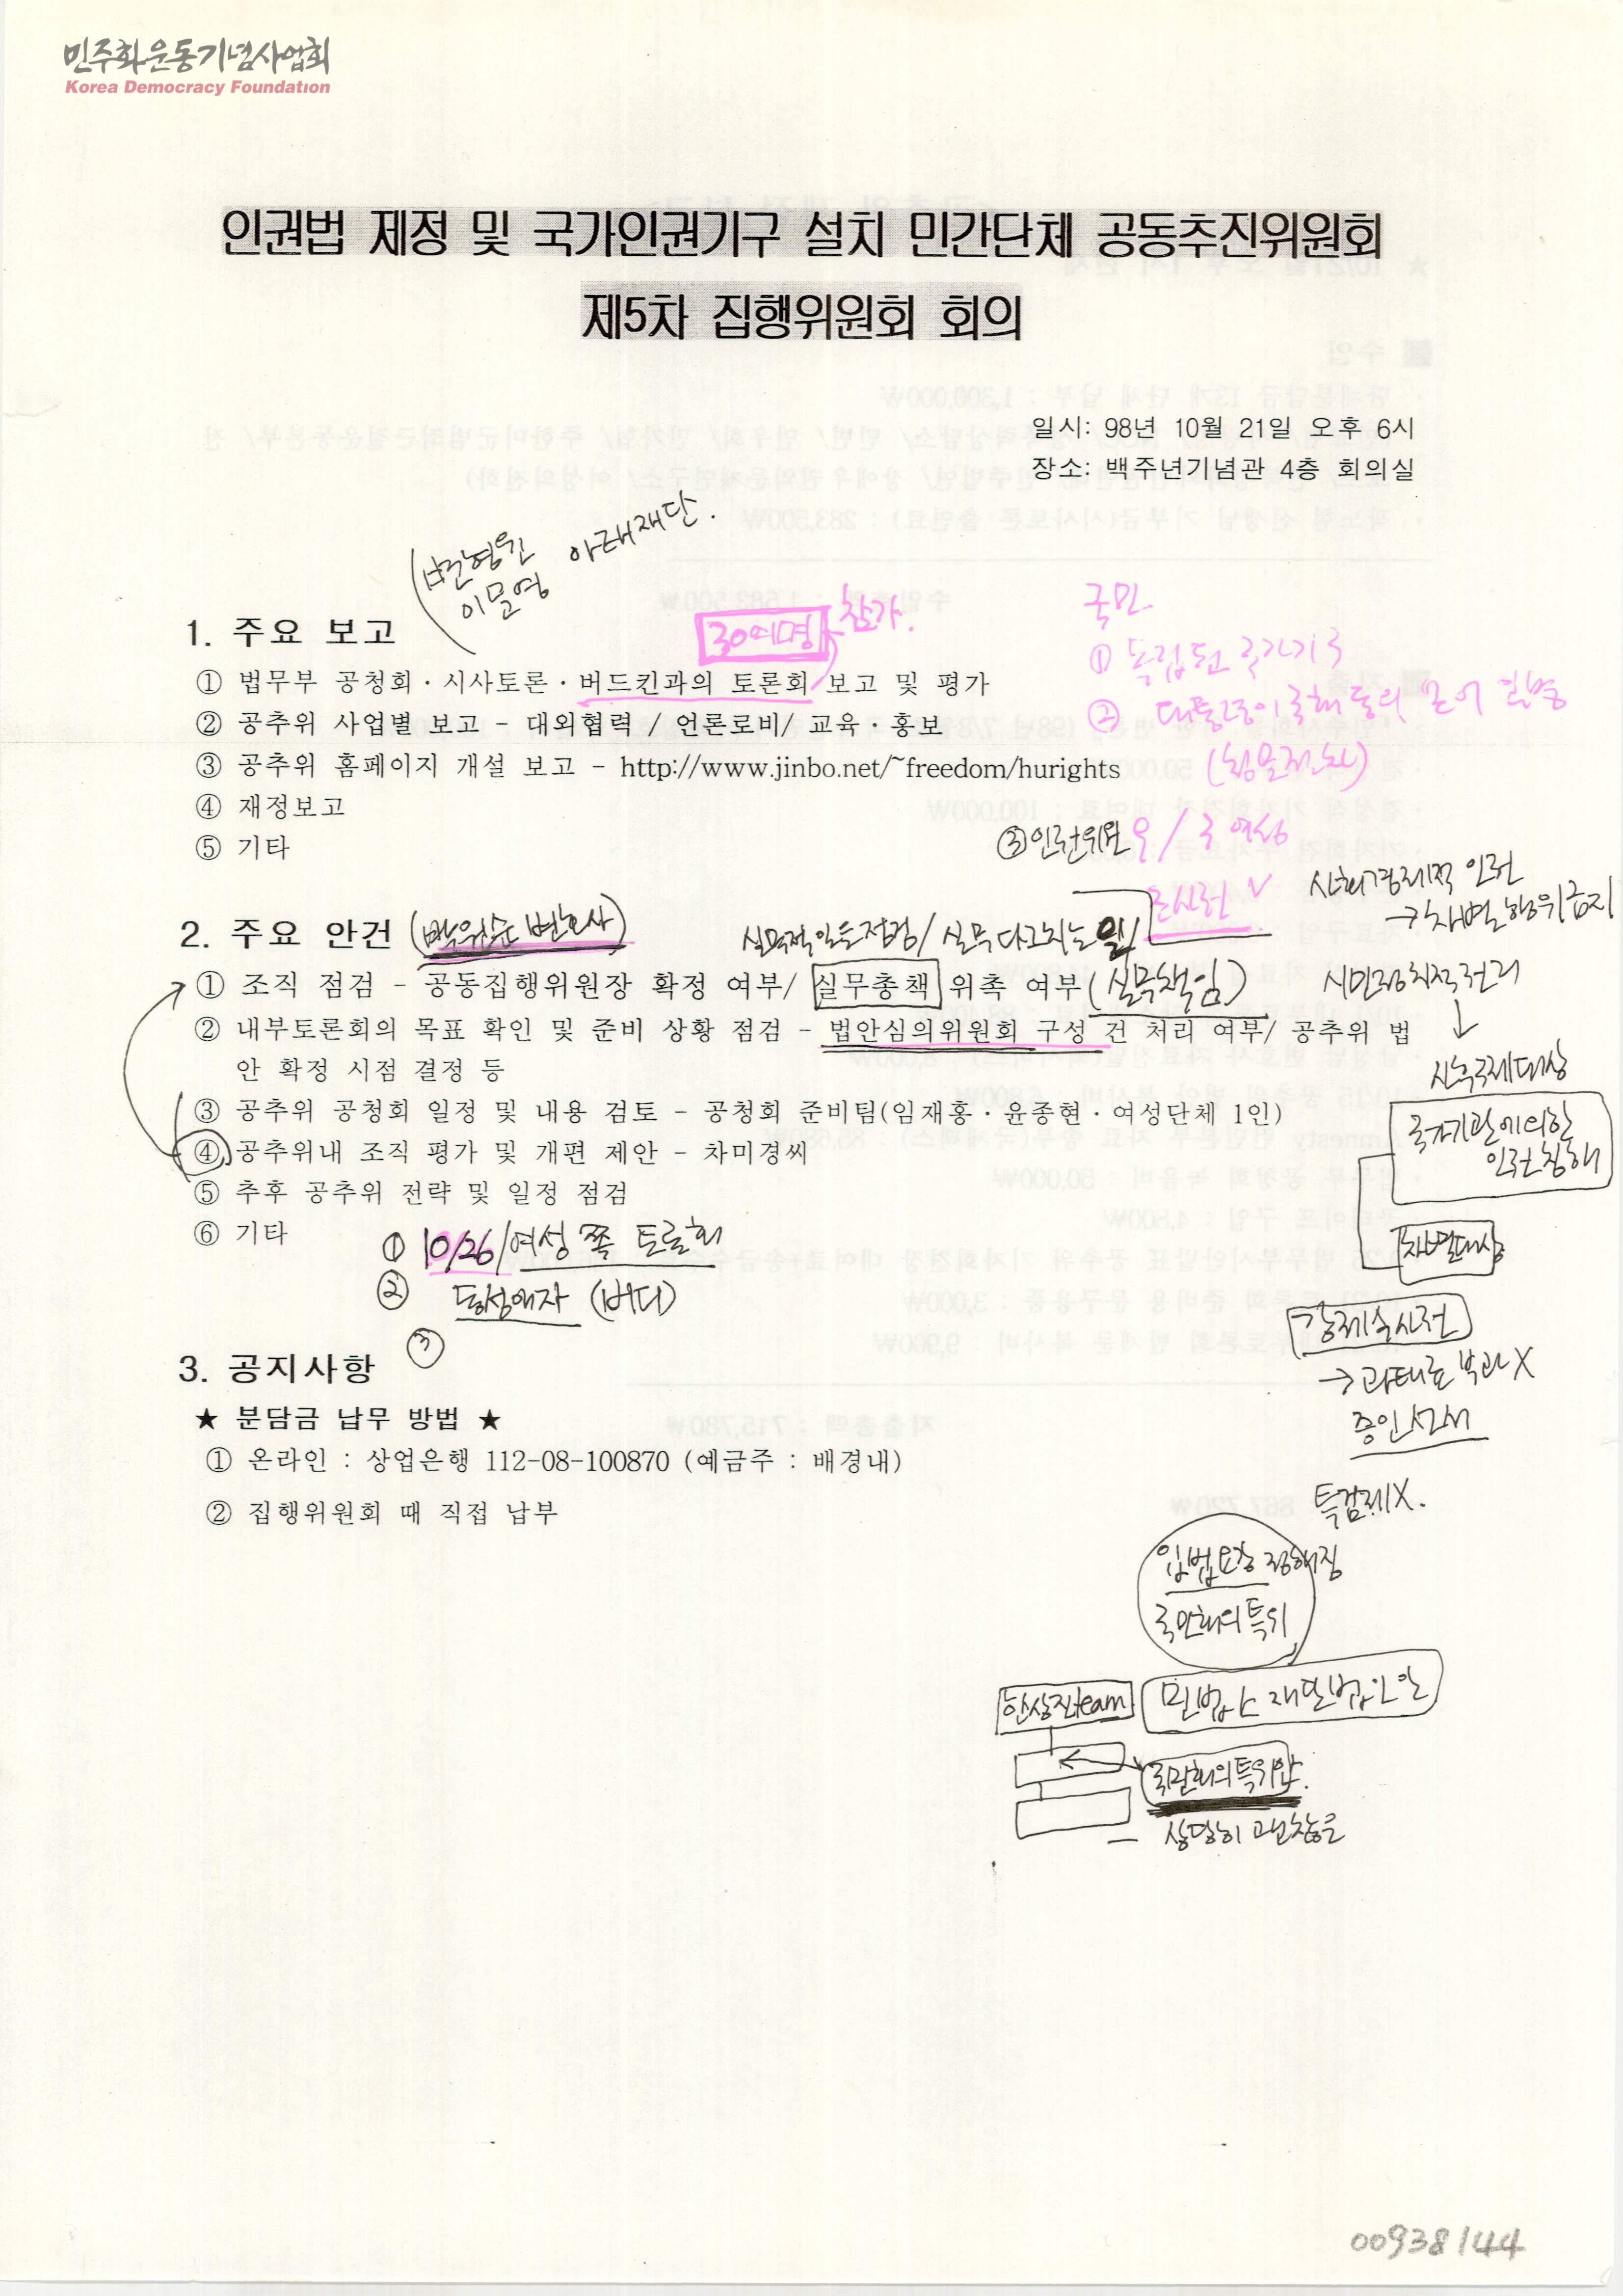 민주화운동기념사업회
Korea Democracy Foundation
인권법 제정 및 국가인권기구 설치 민간단체 공동추진위원회
제5차 집행위원회 회의
일시: 98년 10월 21일 오후 6시
장소: 백주년기념관 4층 회의실
아태재단.
1. 주요 보고
30여명 참가.
국민.
① 독립된 국가기구
① 법무부 공청회·시사토론·버드킨과의 토론회 보고 및 평가
②
② 공추위 사업별 보고 - 대외협력 / 언론로비/ 교육·홍보
③ 공추위 홈페이지 개설 보고 - http://www.jinbo.net/~freedom/hurights
④ 재정보고
③ 인권위원 9 / 3 여성
⑤ 기타
사회경제적 인권
→ 차별행위금지
2. 주요 안건 (박원순 변호사)
실무적일들점검/ 실무 다그치는 일
시민정치적권리
① 조직 점검 - 공동집행위원장 확정 여부/ 실무총책 위촉 여부 (실무책임)
② 내부토론회의 목표 확인 및 준비 상황 점검 - 법안심의위원회 구성 건 처리 여부/ 공추위 법
안 확정 시점 결정 등
③ 공추위 공청회 일정 및 내용 검토 - 공청회 준비팀(임재홍·윤종현·여성단체 1인)
국가기관에의한
인권침해
④ 공추위내 조직 평가 및 개편 제안 - 차미경씨
⑤ 추후 공추위 전략 및 일정 점검
⑥ 기타
차별대상
① 10/26/여성 쪽 토론회
② 동성애자 (버디)
③
→ 과태료 부과 X
증인선서
3. 공지사항
★ 분담금 납무 방법 ★
① 온라인 : 상업은행 112-08-100870 (예금주 : 배경내)
② 집행위원회 때 직접 납부
특검제X.
입법요강 정해짐
국민회의 특위
한상진team
국민회의 특위안.
- 상당히 괜찮음
00938144